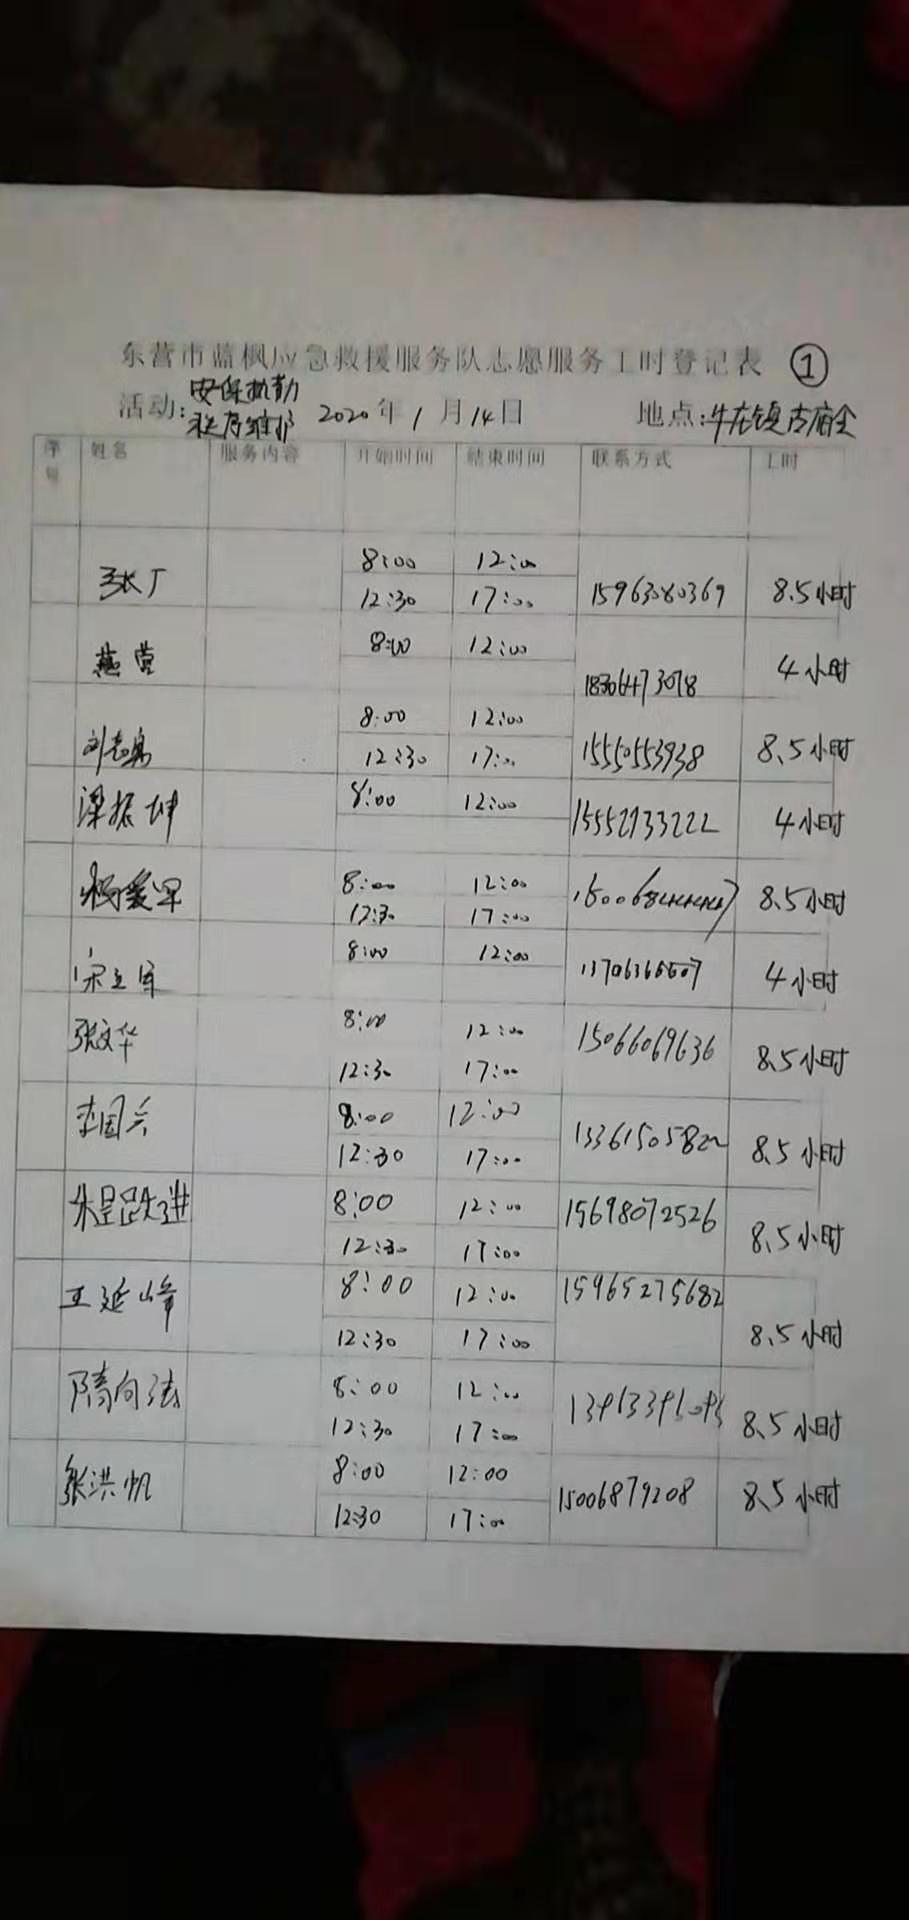 东营市蓝枫应急救援服务队志愿服务工时登记表 ①
活动: 安保执勤
秩序维护 2020年1月14日 地点:牛庄镇古庙会
序号 姓名 服务内容 开始时间 结束时间 联系方式 工时
8:00 12:00
12:30 17:00 15963080369 8.5小时
燕营 8:00 12:00 18306473078 4小时
8:00 12:00
12:30 17:00 15550553938 8.5小时
梁振坤 8:00 12:00 15552933222 4小时
杨爱军 8:00 12:00
12:30 17:00 8.5小时
宋立军 8:00 12:00 4小时
张文华 8:00 12:00 15066069636
12:30 17:00 8.5小时
李国兴 8:00 12:00
12:30 17:00 8.5小时
8:00 12:00 15698072526
12:30 17:00 8.5小时
王延峰 8:00 12:00 15965275682
12:30 17:00 8.5小时
隋向法 8:00 12:00
12:30 17:00 8.5小时
张洪帆 8:00 12:00 15006879208 8.5小时
12:30 17:00